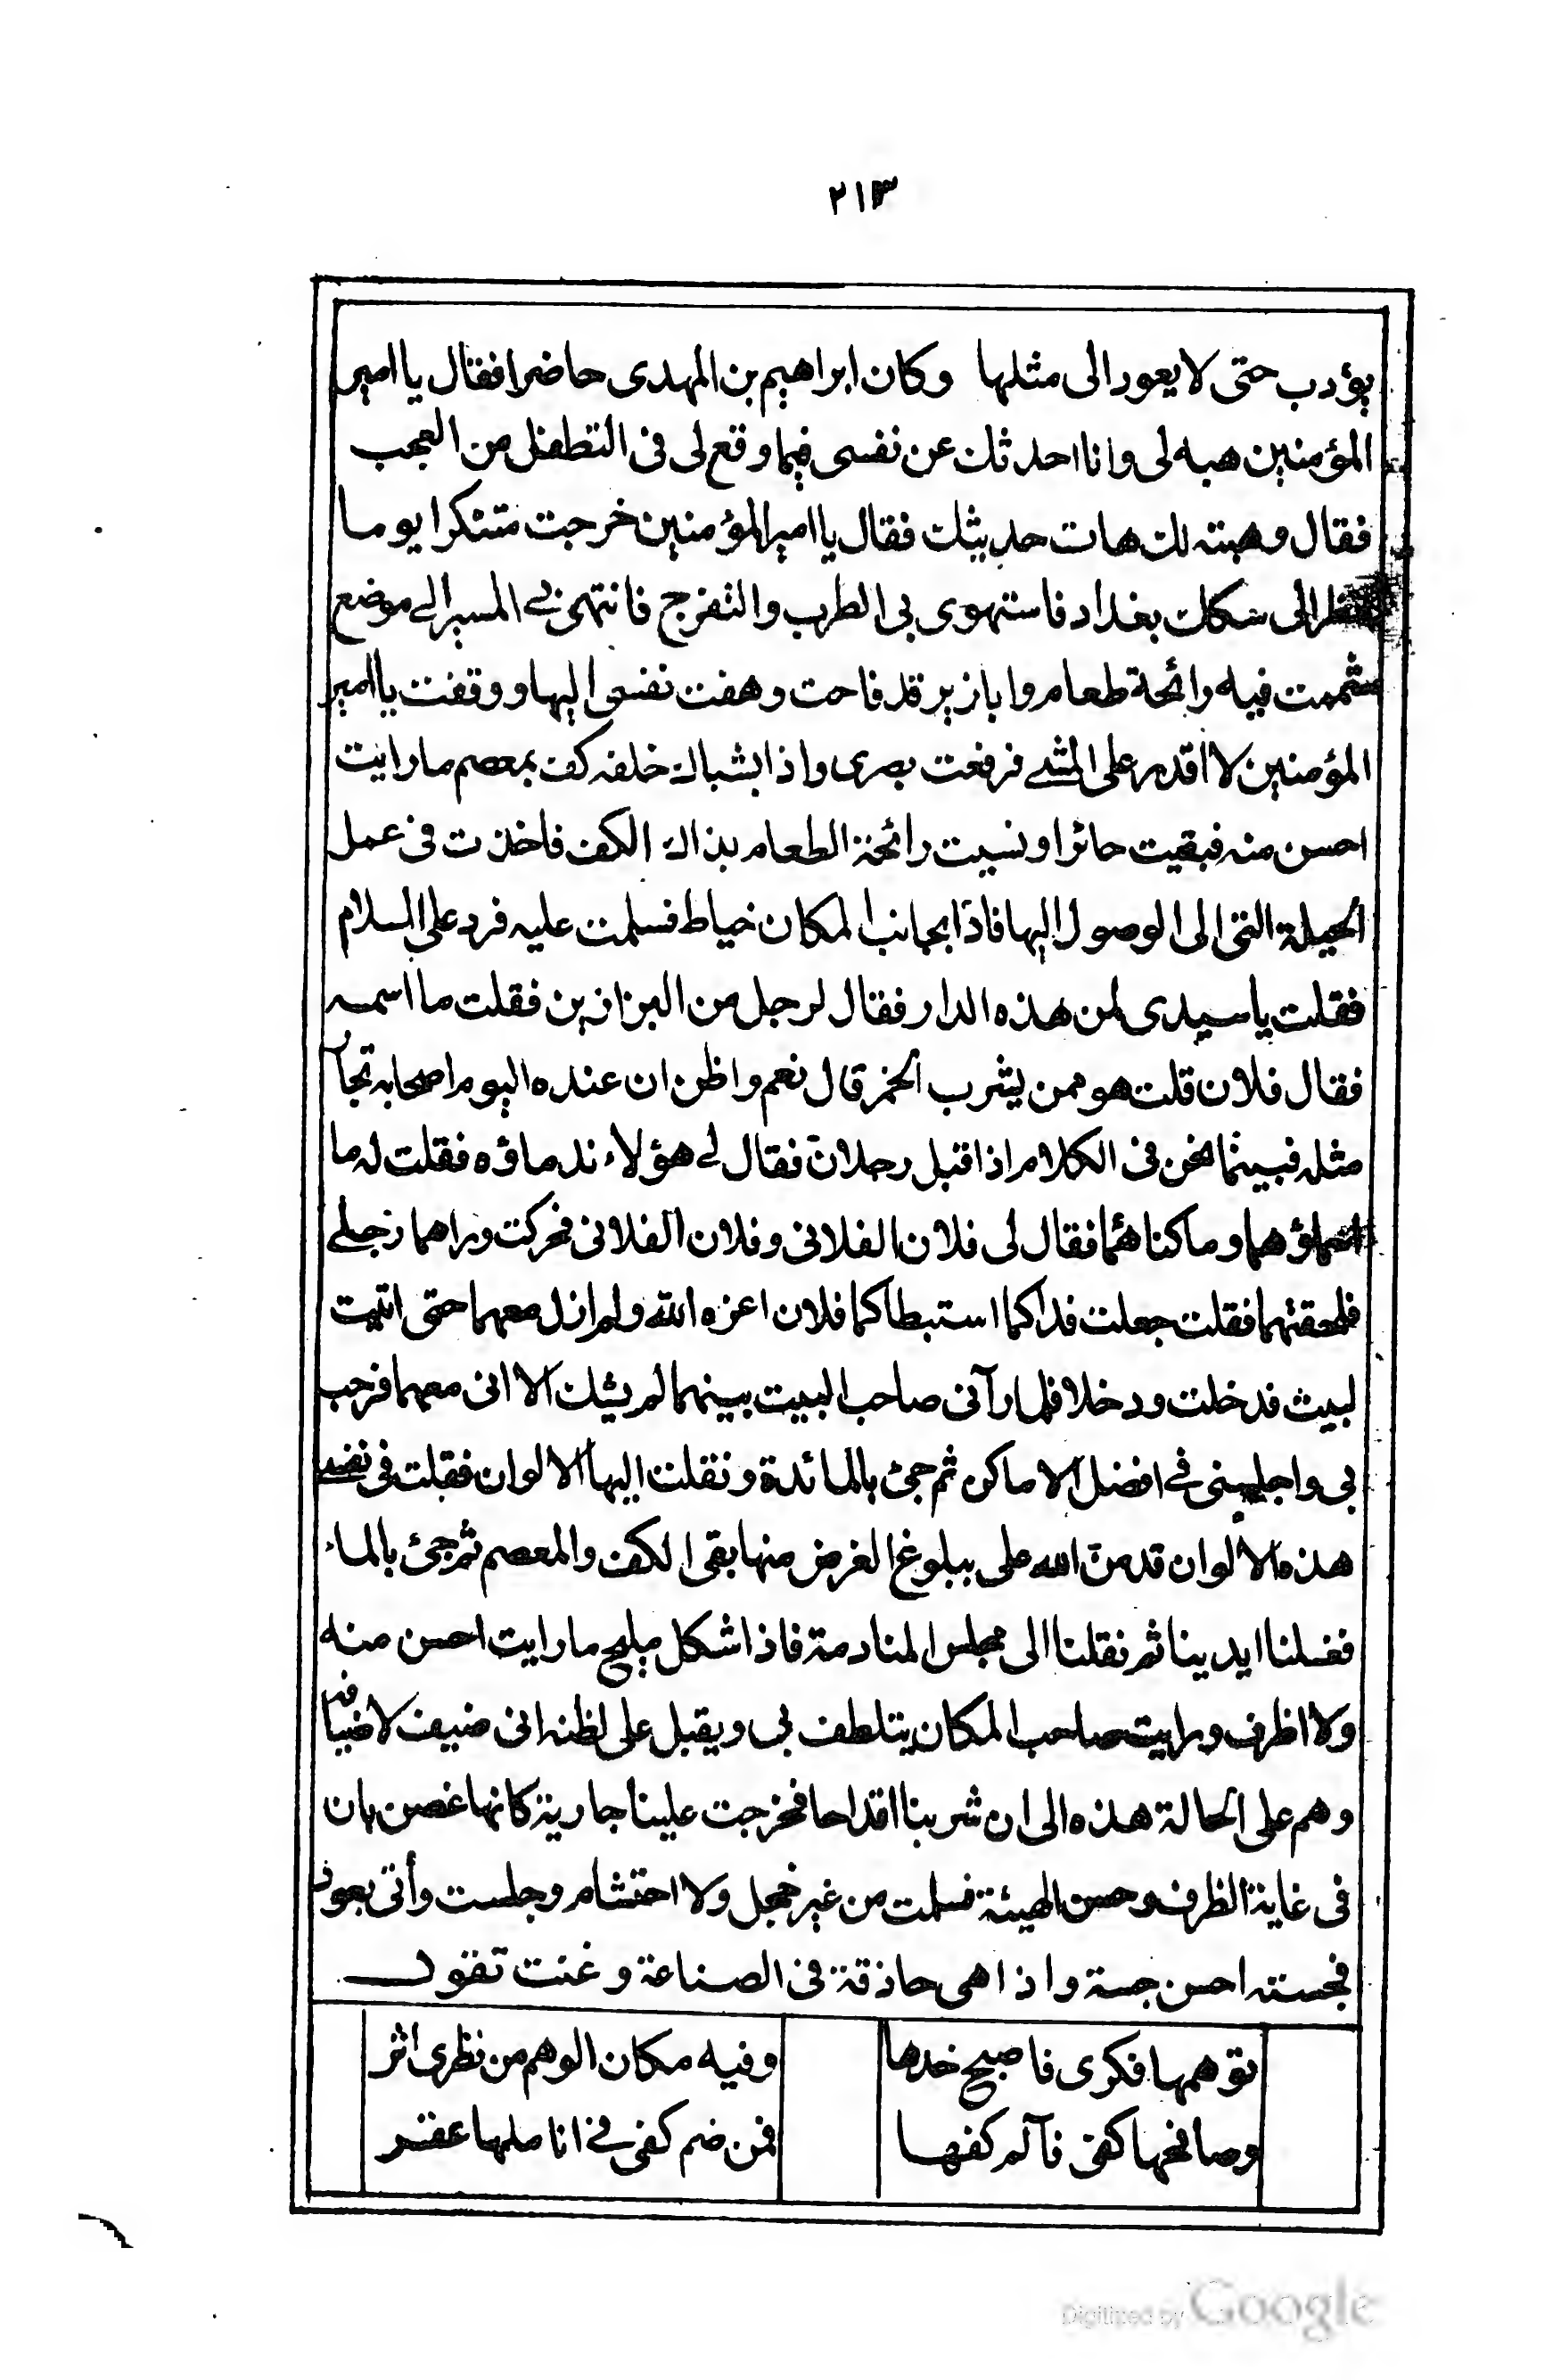 ٢١٣
يؤدب حتى لا يعود الى مثلها وكان ابراهيم بن المهدى حاضرا فقال يا امير
المؤمنين هبه لى وانا احدثك عن نفسى فيما وقع لى فى التطفل من العجب
فقال وهبته لك هات حديثك فقال يا امير المؤمنين خرجت متنكرا يوما
الى سكك بغداد فاستهوى بى الطرب والتفرج فانتهى بى المسير الى موضع
شممت فيه رائحة طعام وابازير قد فاحت وهفت نفسى اليها ووقفت يا امير
المؤمنين لا اقدر على المشى فرفعت بصرى واذا بشباك خلفه كف بمعصم ما رايت
احسن منه فبقيت حائرا ونسيت رائحة الطعام بذاك الكف فاخذت فى عمل
الحيلة التى الى الوصول اليها فاذا بجانب المكان خياط فسلمت عليه فرد على السلام
فقلت يا سيدى لمن هذه الدار فقال لرجل من البزازين فقلت ما اسمه
فقال فلان قلت هو ممن يشرب الخمر قال نعم واظن ان عنده اليوم اصحابه تجار
مثله فبينما نحن فى الكلام اذ اقبل رجلان فقال لى هؤلاء ندماؤه فقلت له ما
اسماؤهما وما كناهما فقال لى فلان الفلانى وفلان الفلانى فحركت وراهما رجلى
فلحقتهما فقلت جعلت فداكما استبطاكما فلان اعزه الله ولم ازل معهما حتى اتيت
لبيت فدخلت ودخلا فلما رآنى صاحب البيت بينهما لم يشك الا انى معهما فرحب
بى واجلسنى فى افضل الاماكن ثم جئ بالمائدة ونقلت اليها الالوان فقلت فى نفسى
هذه الالوان قد منّ الله على ببلوغ الغرض منها بقى الكف والمعصم ثم جئ بالماء
فغسلنا ايدينا ثم نقلنا الى مجلس المنادمة فاذا شكل مليح ما رايت احسن منه
ولا اظرف ورايت صاحب المكان يتلطف بى ويقبل على لظنه انى ضيف لاضيافه
وهم على الحالة هذه الى ان شربنا اقداحا فخرجت علينا جارية كانها غصن بان
فى غاية الظرف وحسن الهيئة فسلمت من غير خجل ولا احتشام وجلست وأتى بعود
فجسته احسن جسة واذا هى حاذقة فى الصناعة وغنت تقول
توهمها فكرى فاصبح خدها وفيه مكان الوهم من نظرى اثر
وصافحها كفى فآلم كفها فمن ضم كفى فى اناملها عقر
Digitized by Google